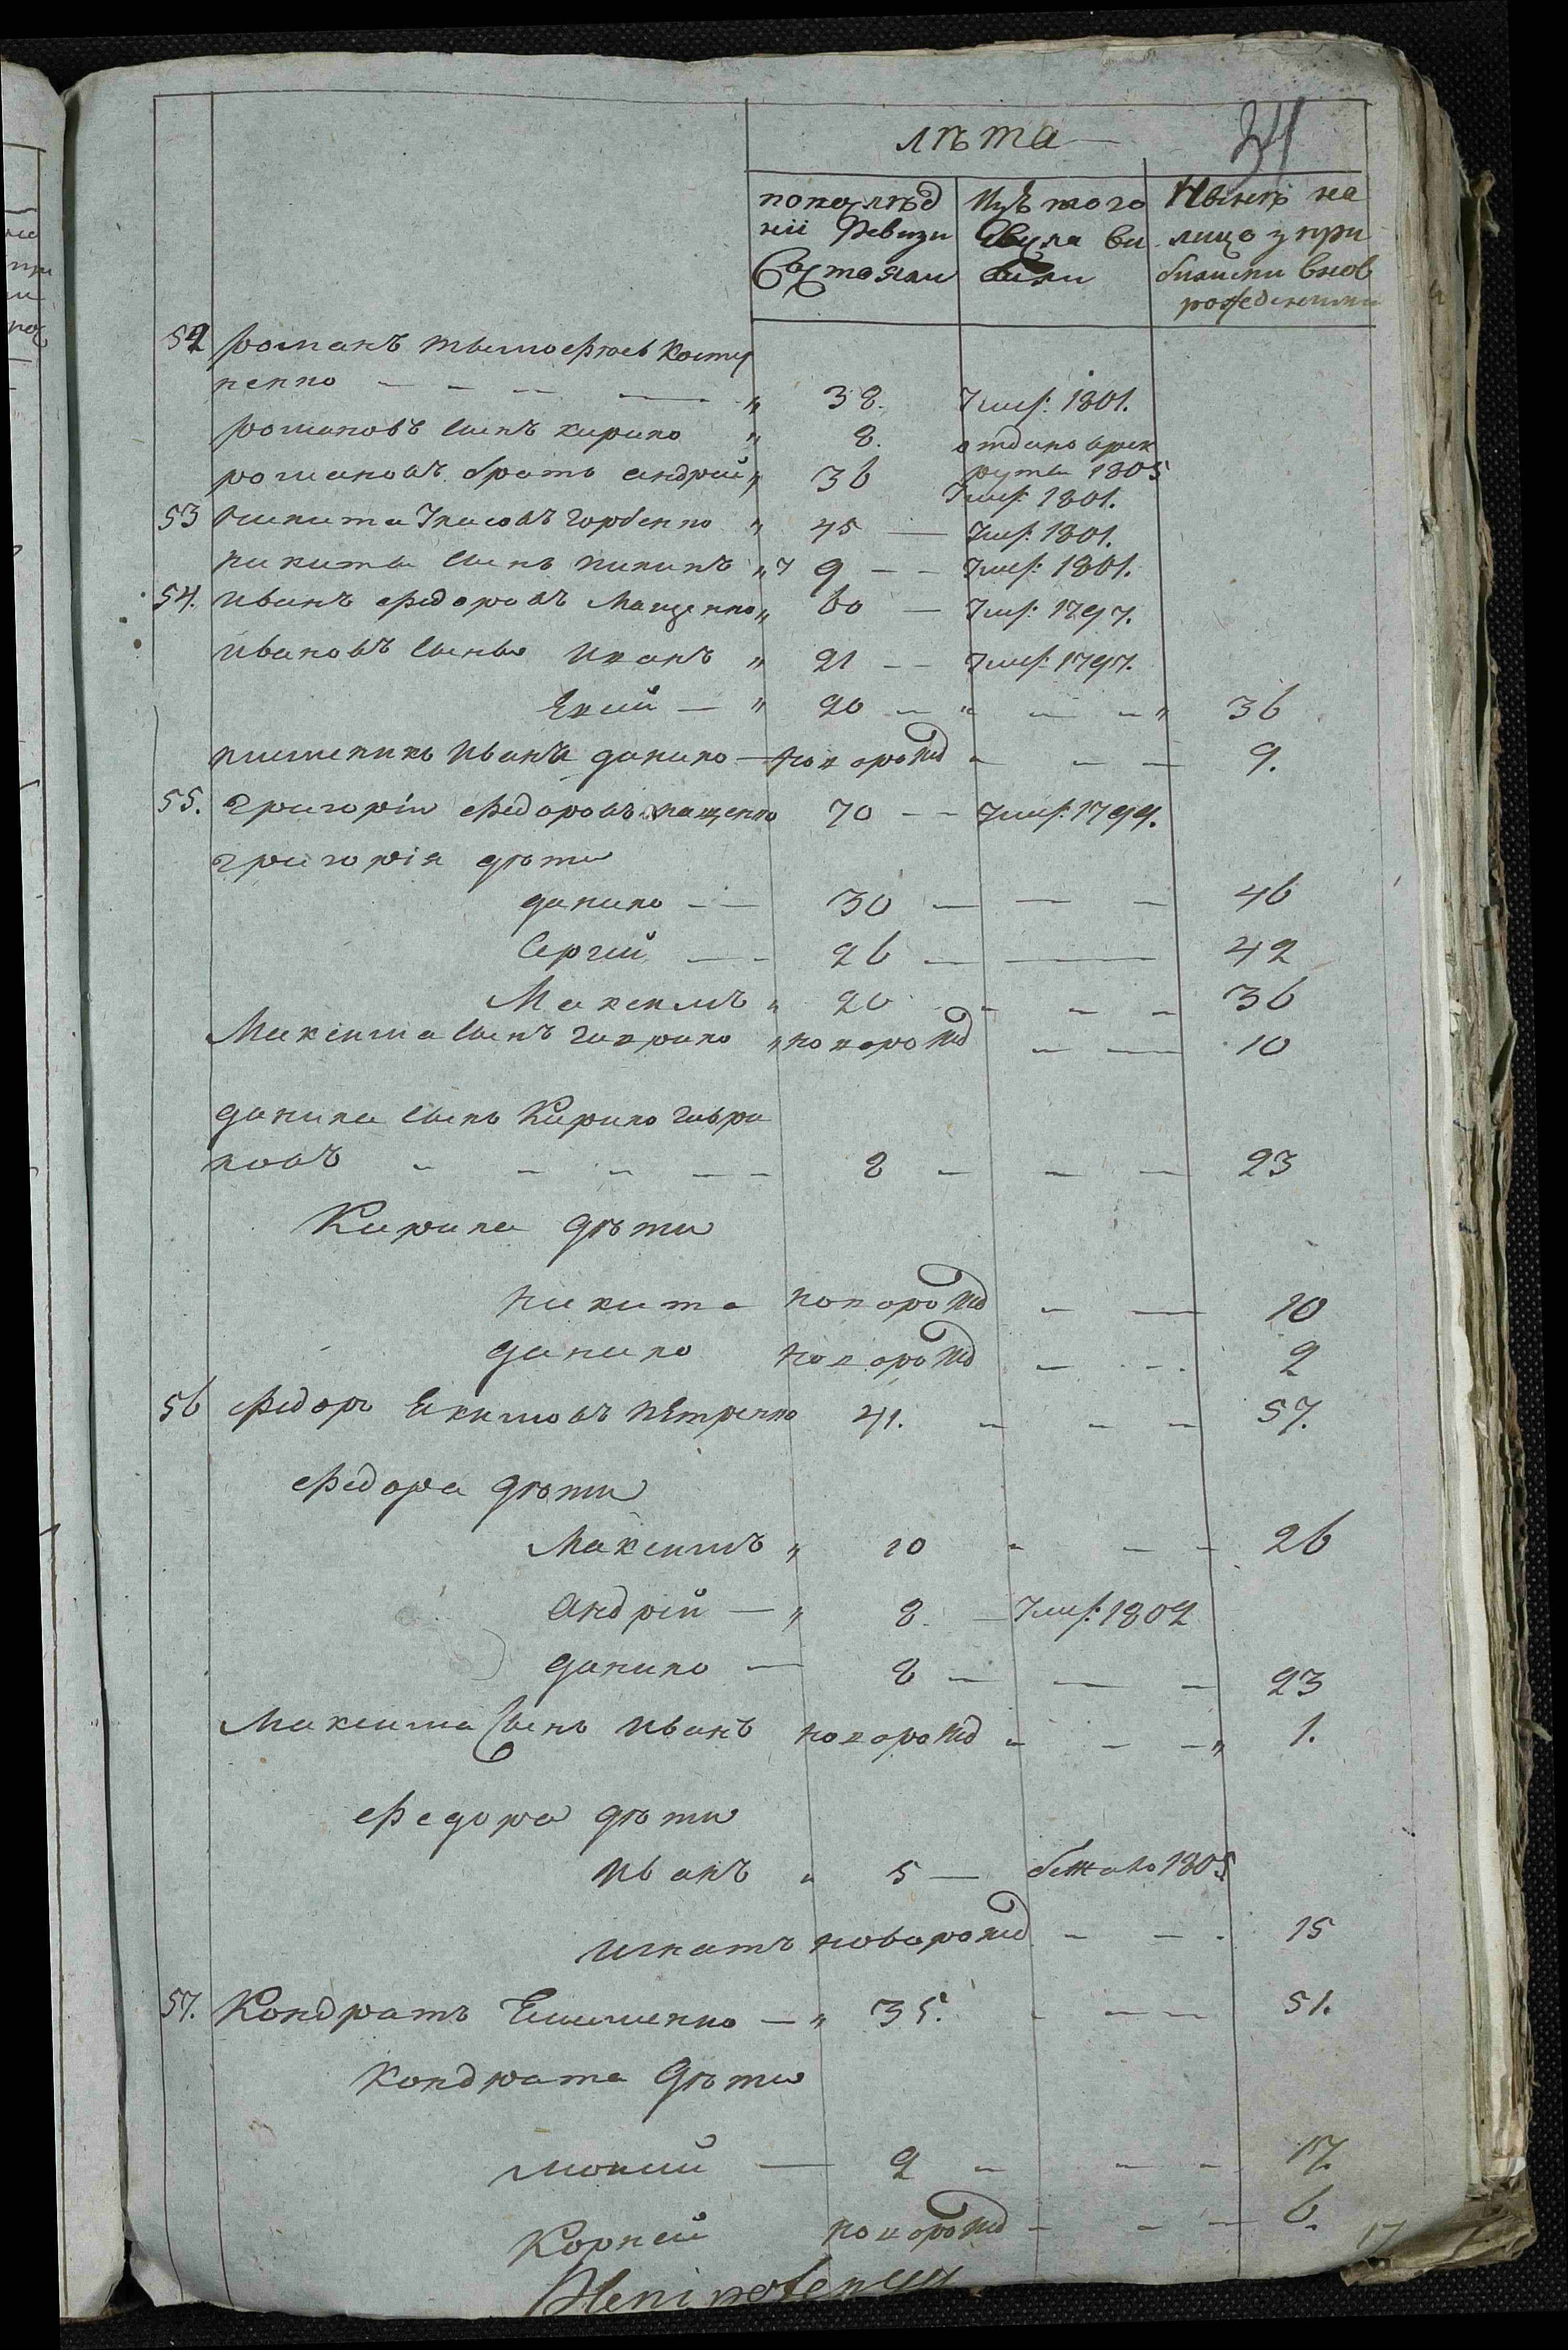 34
лѣта
попослѣд ніи Ревизи Состояли
Изъ того Числа вибили
Нынѣ налицо з прибилими вновь рожденними
52 романъ тымофѣев Косту
ненко — — — — " 38. Умеръ: 1801.
романовъ синъ кирило " 8. отдано врек
руты 1805
романовъ братъ андрей " 36 Умеръ: 1801.
53 никита горбенко " 45 — Умеръ: 1801.
никиты синъ " 9 — — Умеръ: 1801.
54. иванъ федоровъ Мащенко " 60 — Умеръ: 1797.
ивановъ сины иванъ " 21 — — Умеръ: 1797.
Екий — " 20 — " — — " 36
племеникъ ивана данило — новорожд " — — 9.
55. григорій федоровъ мащенко 70 — — Умеръ: 1799.
григорія дѣти
данило — — 30 — — — 46
Сергий — — 26 — — 42
Максимъ " 20 " — — 36
Максима синъ гаврило " новорожд — — 10
данила синъ Кирило гаври
ловъ " — " — — 8 — — — 23
Кирила дѣти
никита новорожд — — 10
данило новорожд — — 2
56 федоръ Екимовъ пѣтренко 41. — — — 57.
федора дѣти
Максимъ " 10 " — — 26
андрій — " 8. — Умеръ: 1802
данило — 8 — — — 23
Максима Синъ иванъ новорожд " — — " 1.
федора дѣти
иванъ " 5 — бежало 1805
игнатъ новорожд — — . 15
57. Кондратъ — " 35. " — — 51.
Кондрата дѣти
мокий — 2 — — — 17.
Корней новорожд — — — 6.
17